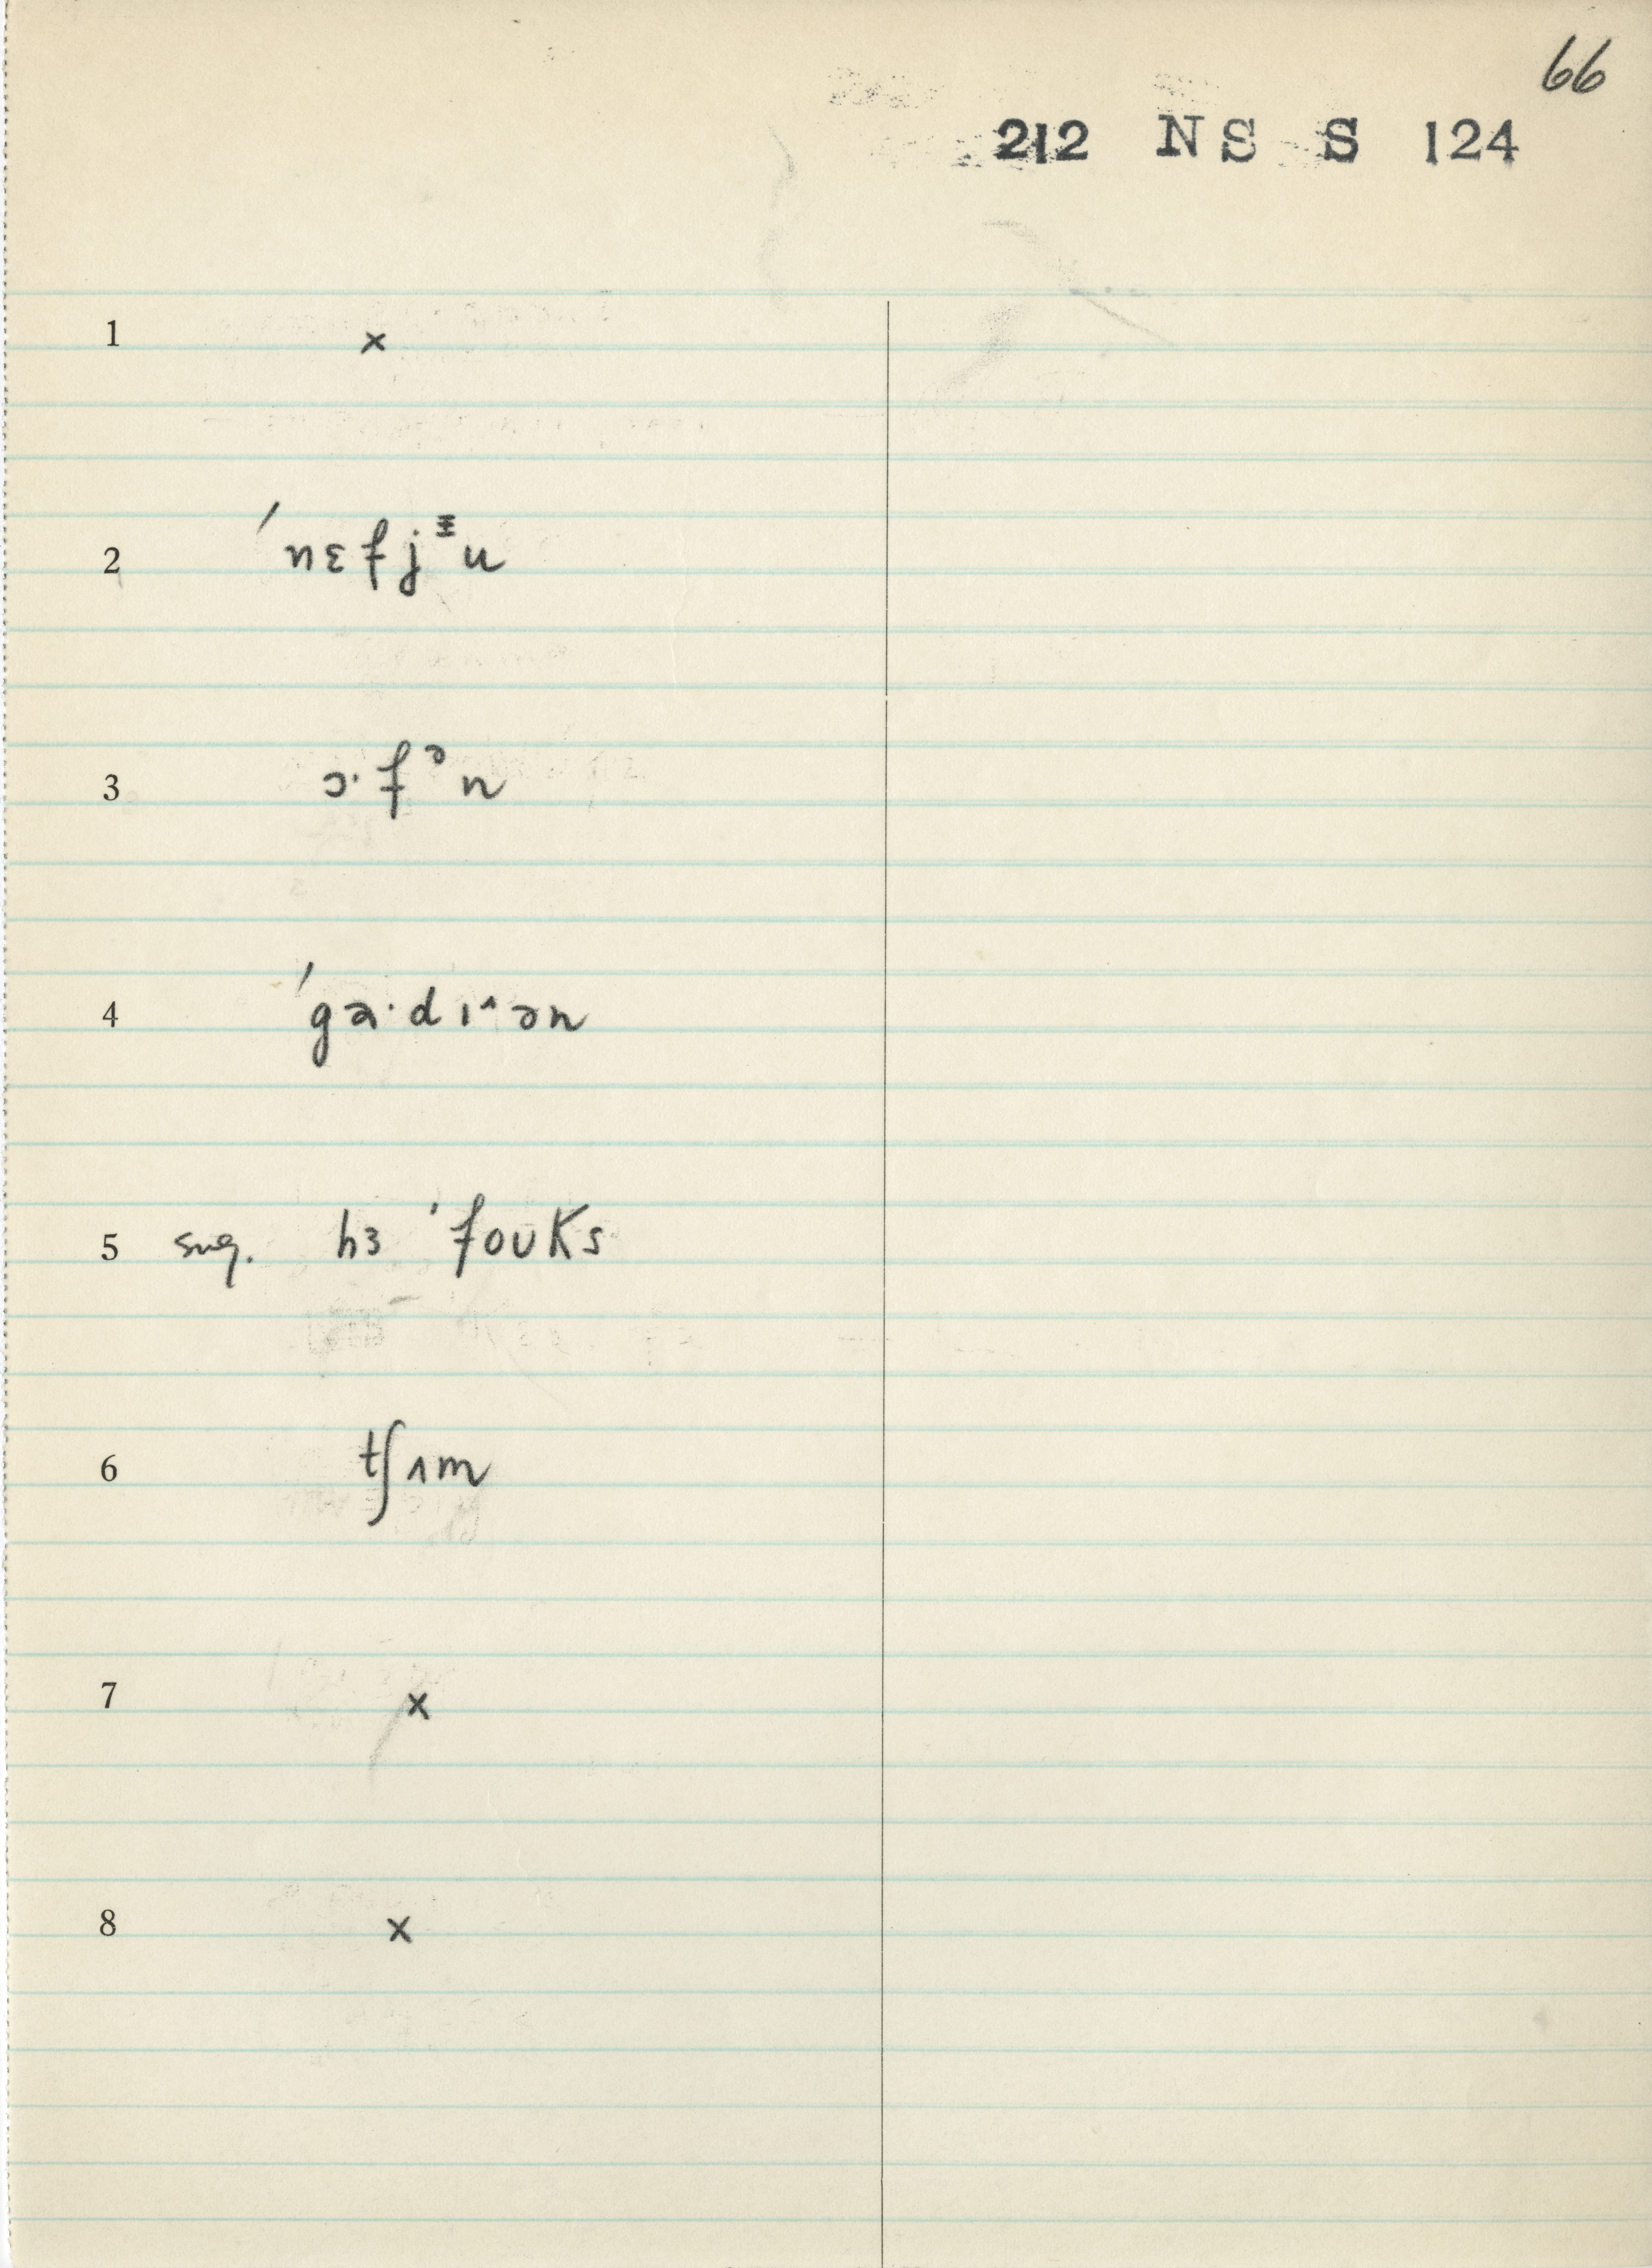 66
212 NS S 124
1 x
2 ˈnɛfjᵻu
3 ɔ·fᵊn
4 ˈga·dɪ^ən
5 sug. hɜ ˈfoʊks
6 tʃʌm
7 x
8 x